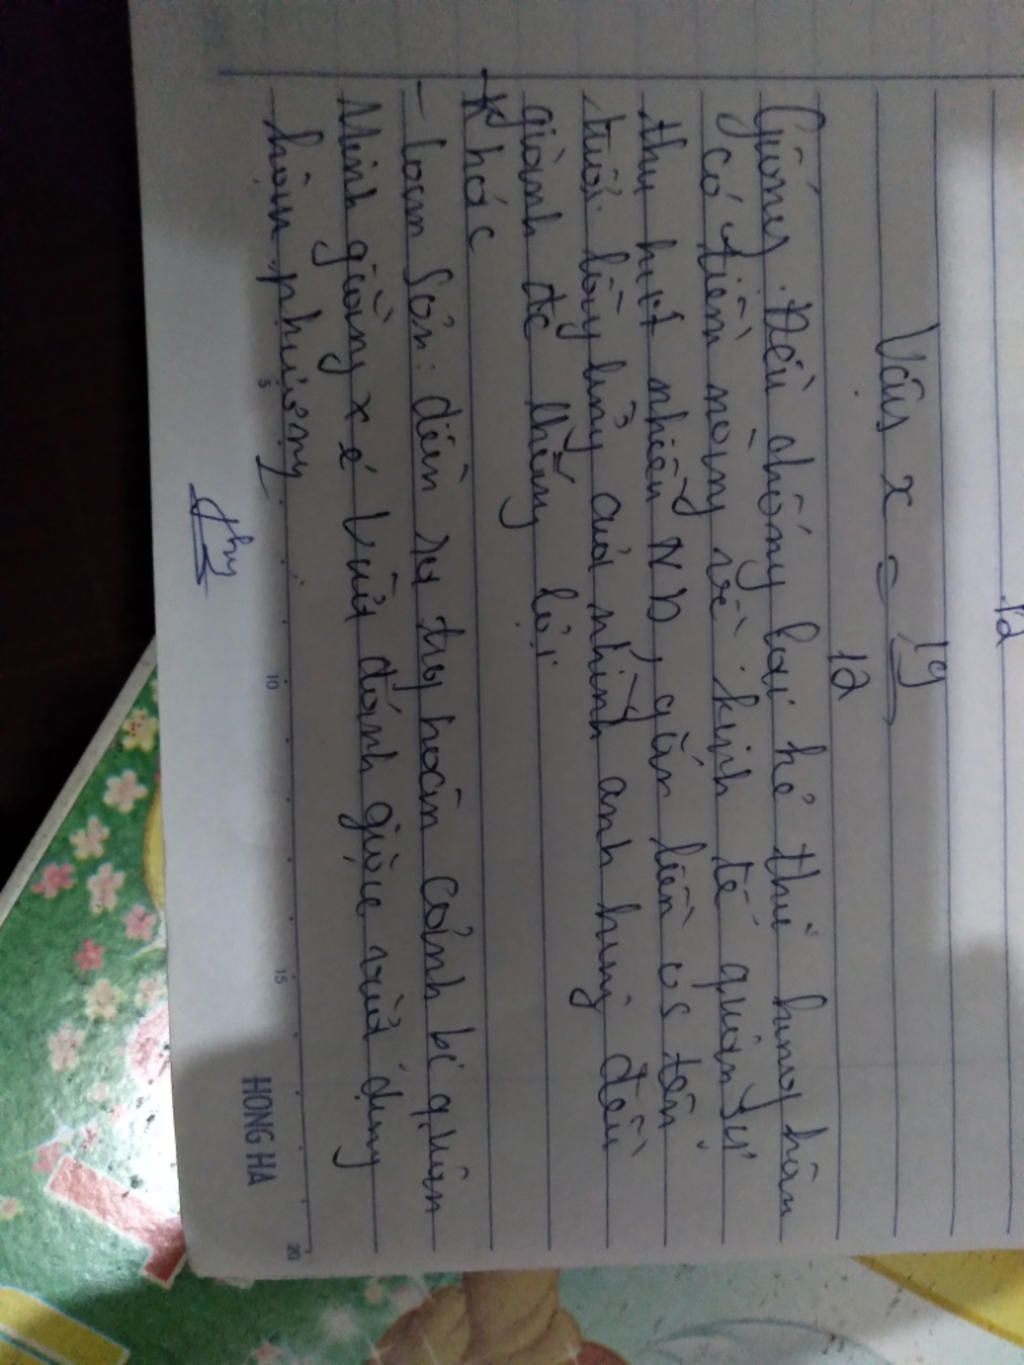 12
Vậy x = 19
12
Giống. Đều chống lại kẻ thù hung hãn
có tiềm năng về kinh tế quân sự
thu hút nhiều ND, gắn liền vs tên
tuổi lẫy lừng của những anh hùng đều
giành đc thắng lợi
Khác
- Lam Sơn: diễn ra trg hoàn cảnh bị quân
Minh giằng xé vừa đánh giặc vừa dựng
hậu phương
5 10 15 20
HONG HA